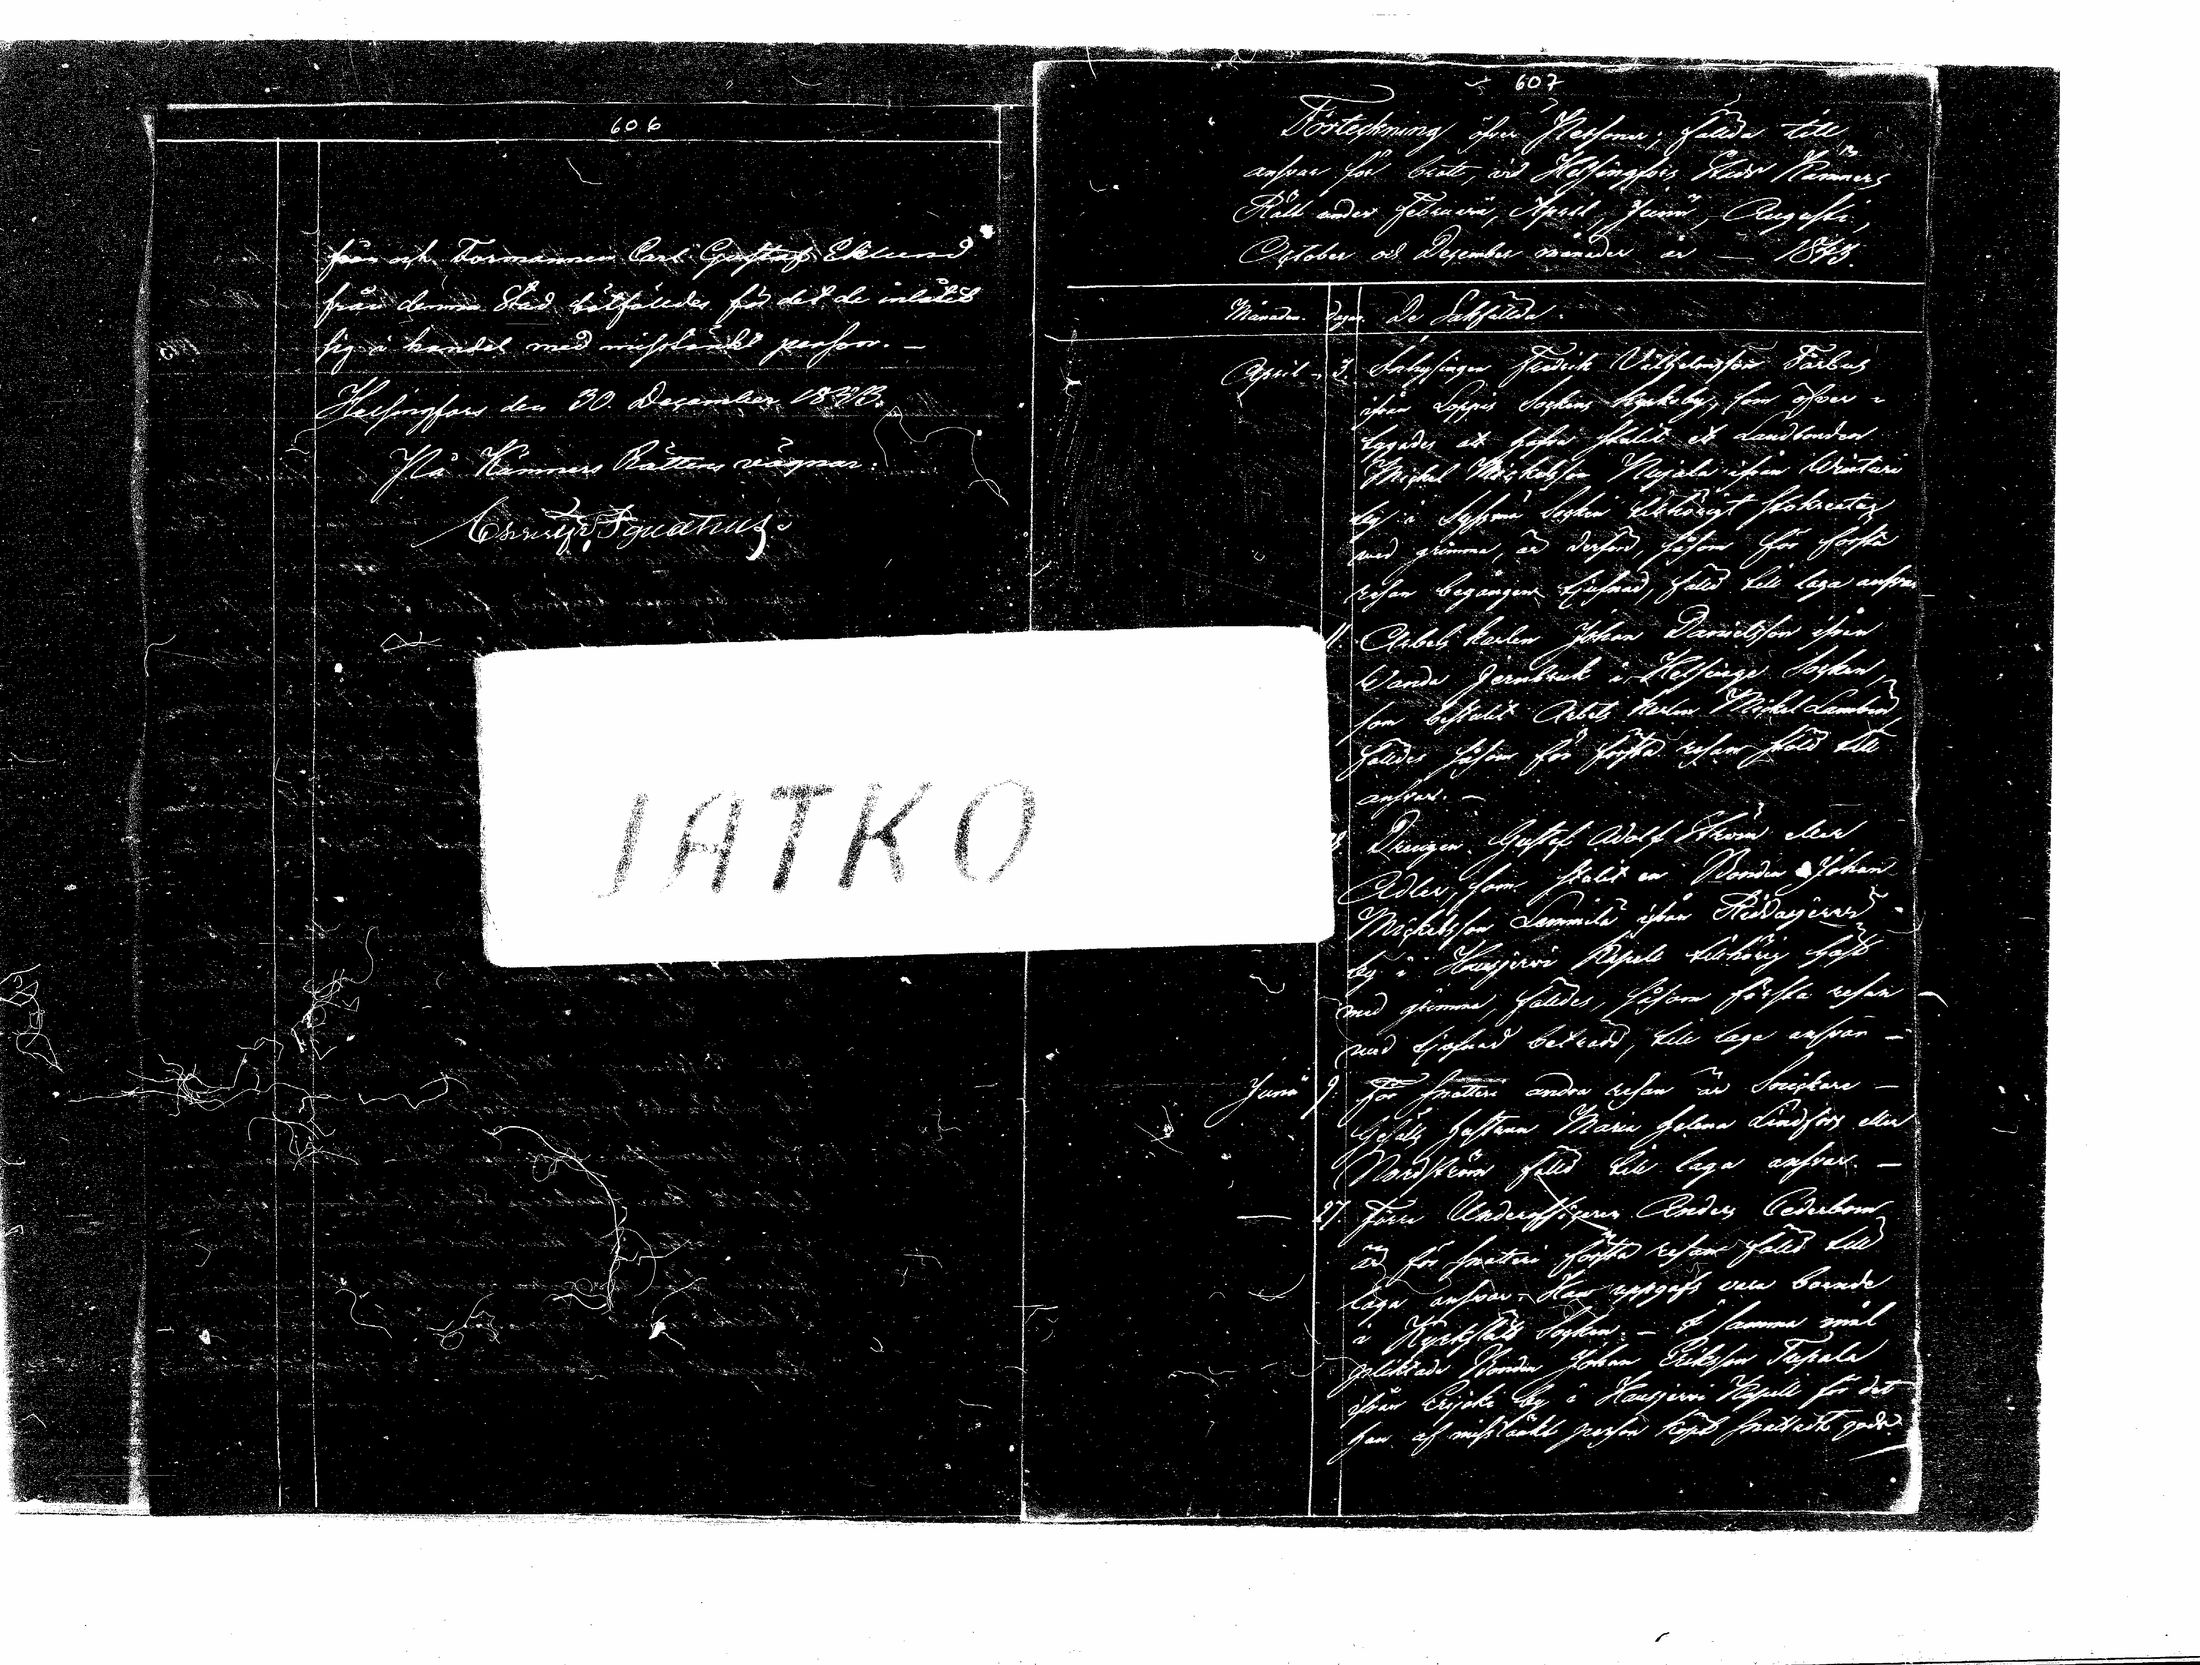 606
från och Formannen Carl Gustaf Eklund
från denna Stad bötfälldes för det de inlåtit
sig i handel med misstänkt person. —
Helsingfors den 30. December 1843.
På Kämners Rättens vägnar:
Ignatius
JATKO
607
Förteckning öfver Personer, fällda till
ansvar för brott, vid Helsingfors Stads Kämners
Rätt under Februarii, April, Junii, Augusti,
October och December månader år — 1843.
Månaden. Dagen. De Sakfällda.
April 3. Inhysingen Fredrik Vilhelmsson Färbus
ifrån Loppis Sockens Kyrkoby, som öfver-
tygades at hafva stulit et Landbonden
Mickel Mickelsson Nupala ifrån
by i Sysmä Socken tillhörigt stokreatur
med grimma, är derföre, såsom för första
resan begången tjufnad, fälld till laga ansvar
11. Arbets Karlen Johan Danielsson ifrån
Wanda Jernbruk i Helsinge Socken,
som bestulit Arbets Karlen Mickel
fälldes såsom för första resan stöld till
ansvar. —
8. Drengen Gustaf Adolf Ström eller
Adler, som stulit en Bonden Johan
Mickelsson Lemmilä ifrån
by i Hausjervi Kapell tillhörig häst
med grimma, fälldes, såsom första resan
med tjufnad beträdd, till laga ansvar —
Junii 9. För snatteri andra resan är Snickare —
Gesälls hustrun Maria Helena Lindfors eller
Nordström fälld till laga ansvar. —
27. Förre Underofficeren Anders Cederbom
är för snatteri första resan fälld till
laga ansvar. Han uppgafs vara boende
i Kyrkslätt Socken. — I samma mål
pliktade Bonden Johan Eriksson Tupala
ifrån Erjoki by i Hausjervi Kapell för det
han af misstänkt person köpt snattadt gods.